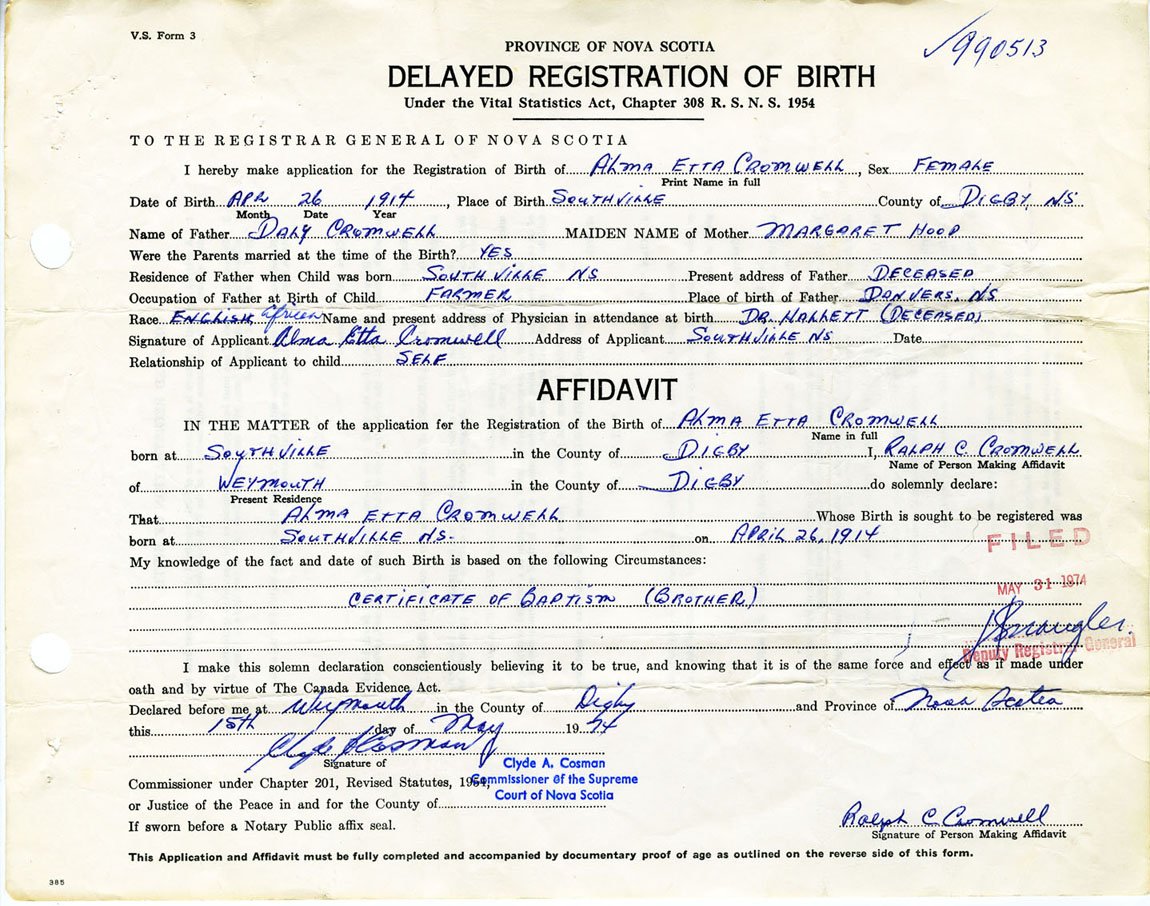 V.S. Form 3
√990513
PROVINCE OF NOVA SCOTIA
DELAYED REGISTRATION OF BIRTH
Under the Vital Statistics Act, Chapter 308 R. S. N. S. 1954
TO THE REGISTRAR GENERAL OF NOVA SCOTIA
I hereby make application for the Registration of Birth of ALMA ETTA CROMWELL, Sex FEMALE
Print Name in full
Date of Birth APR 26 1914, Place of Birth SOUTHVILLE County of DIGBY, NS
Month Date Year
Name of Father DALY CROMWELL MAIDEN NAME of Mother MARGARET HOOD
Were the Parents married at the time of the Birth? YES
Residence of Father when Child was born SOUTHVILLE NS Present address of Father DECEASED
Occupation of Father at Birth of Child FARMER Place of birth of Father DANVERS, NS
Race ENGLISH, African Name and present address of Physician in attendance at birth DR. HALLETT (DECEASED)
Signature of Applicant Alma Etta Cromwell Address of Applicant SOUTHVILLE NS Date
Relationship of Applicant to child SELF
AFFIDAVIT
IN THE MATTER of the application for the Registration of the Birth of ALMA ETTA CROMWELL
Name in full
born at SOUTHVILLE in the County of DIGBY I, RALPH C. CROMWELL
Name of Person Making Affidavit
of WEYMOUTH in the County of DIGBY do solemnly declare:
Present Residence
That ALMA ETTA CROMWELL Whose Birth is sought to be registered was
born at SOUTHVILLE NS. on APRIL 26, 1914
FILED
My knowledge of the fact and date of such Birth is based on the following Circumstances:
MAY 31 1974
CERTIFICATE OF BAPTISM (BROTHER)
Deputy Registrar General
I make this solemn declaration conscientiously believing it to be true, and knowing that it is of the same force and effect as if made under
oath and by virtue of The Canada Evidence Act.
Declared before me at Weymouth in the County of Digby and Province of Nova Scotia
this 15th day of May 1974
Clyde A Cosman
Signature of
Clyde A. Cosman
Commissioner of the Supreme
Court of Nova Scotia
Commissioner under Chapter 201, Revised Statutes, 1954,
or Justice of the Peace in and for the County of
If sworn before a Notary Public affix seal.
Ralph C. Cromwell
Signature of Person Making Affidavit
This Application and Affidavit must be fully completed and accompanied by documentary proof of age as outlined on the reverse side of this form.
385